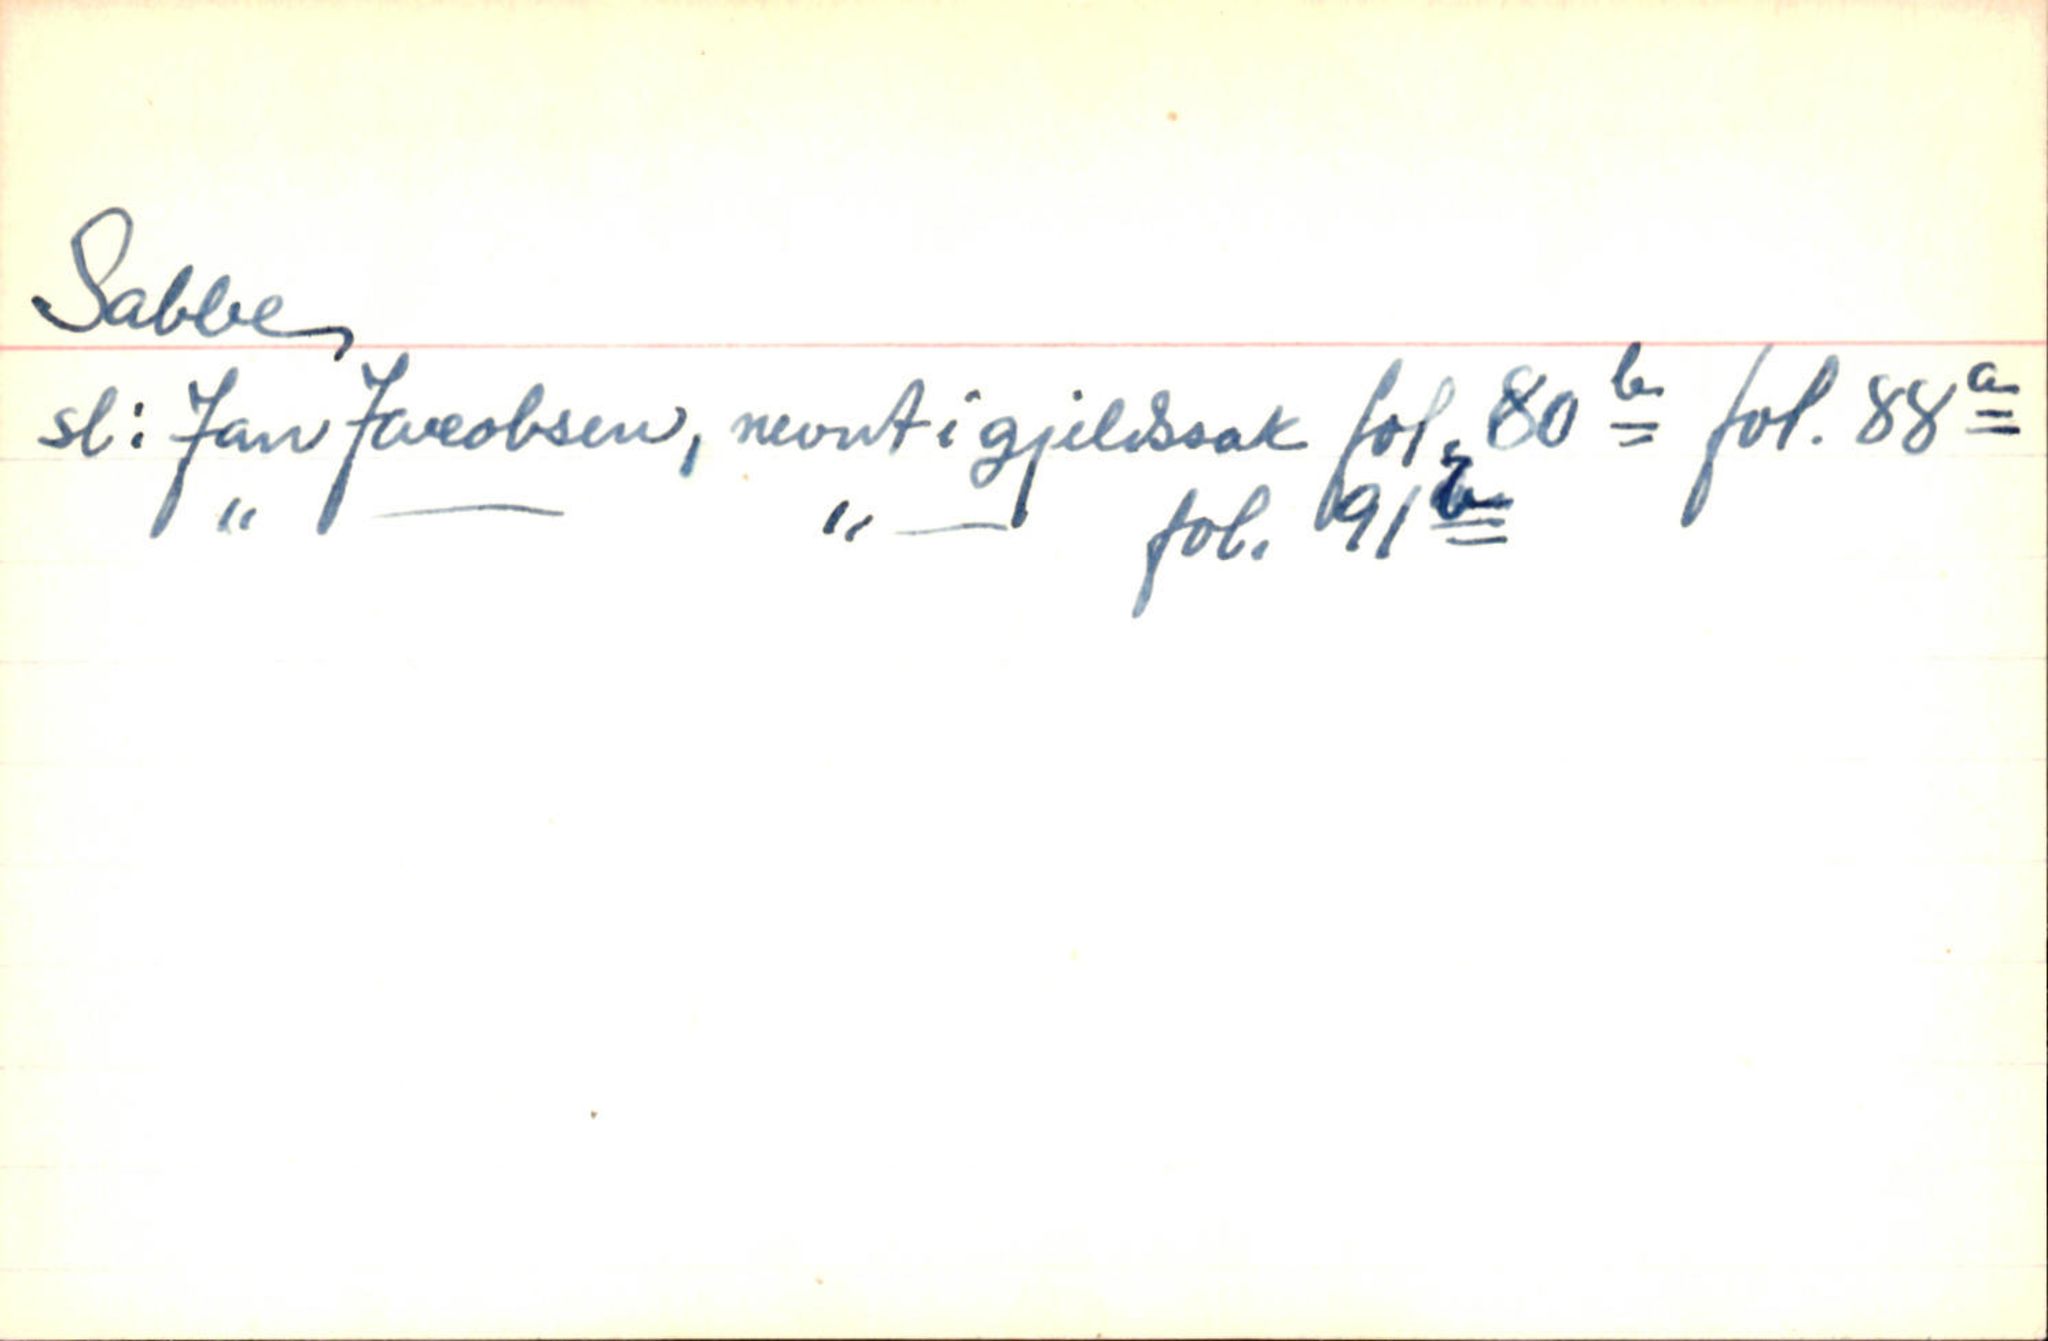 Sabbe,
sl: Jan Jacobsen, nevnt i gjeldssak fol. 80 b fol. 88 a
" — " — fol. 91 b